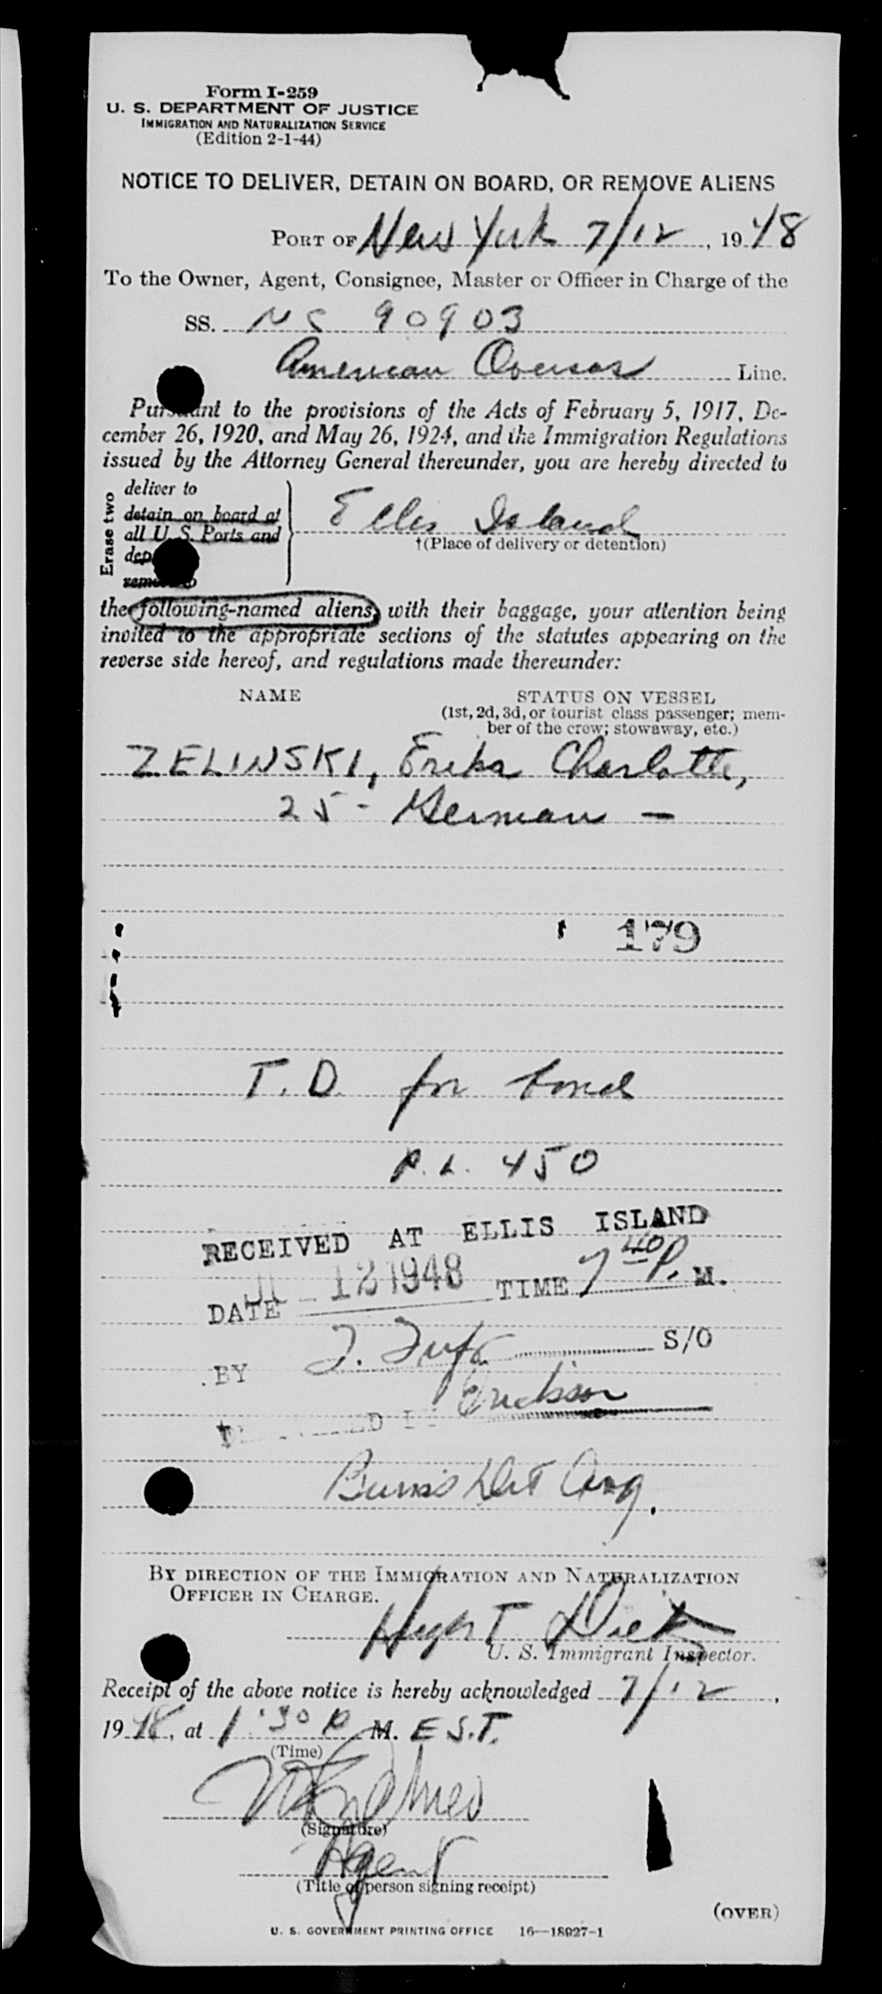 Form I-259
U. S. DEPARTMENT OF JUSTICE
IMMIGRATION AND NATURALIZATION SERVICE
(Edition 2-1-44)
NOTICE TO DELIVER, DETAIN ON BOARD, OR REMOVE ALIENS
PORT OF New York 7/12, 1948
To the Owner, Agent, Consignee, Master or Officer in Charge of the
SS. NC 90903
American Overseas Line.
Pursuant to the provisions of the Acts of February 5, 1917, De-
cember 26, 1920, and May 26, 1924, and the Immigration Regulations
issued by the Attorney General thereunder, you are hereby directed to
Erase two
deliver to
detain on board at
all U. S. Ports and
dep
remove to
Ellis Island
†(Place of delivery or detention)
the following-named aliens, with their baggage, your attention being
invited to the appropriate sections of the statutes appearing on the
reverse side hereof, and regulations made thereunder:
NAME STATUS ON VESSEL
(1st, 2d, 3d, or tourist class passenger; mem-
ber of the crew; stowaway, etc.)
ZELINSKI, Erika Charlotte,
25 - German -
179
T. D. for bond
P. L. 450
RECEIVED AT ELLIS ISLAND
DATE 12 1948 TIME 7 40 P. M.
BY S/O
Erickson
Burns Det Agy.
BY DIRECTION OF THE IMMIGRATION AND NATURALIZATION
OFFICER IN CHARGE.
Hugh T Dick
U. S. Immigrant Inspector.
Receipt of the above notice is hereby acknowledged 7/12,
1948, at 1:30 P M. E.S.T.
(Time)
(Signature)
Agent
(Title of person signing receipt)
(OVER)
U. S. GOVERNMENT PRINTING OFFICE 16—18927-1